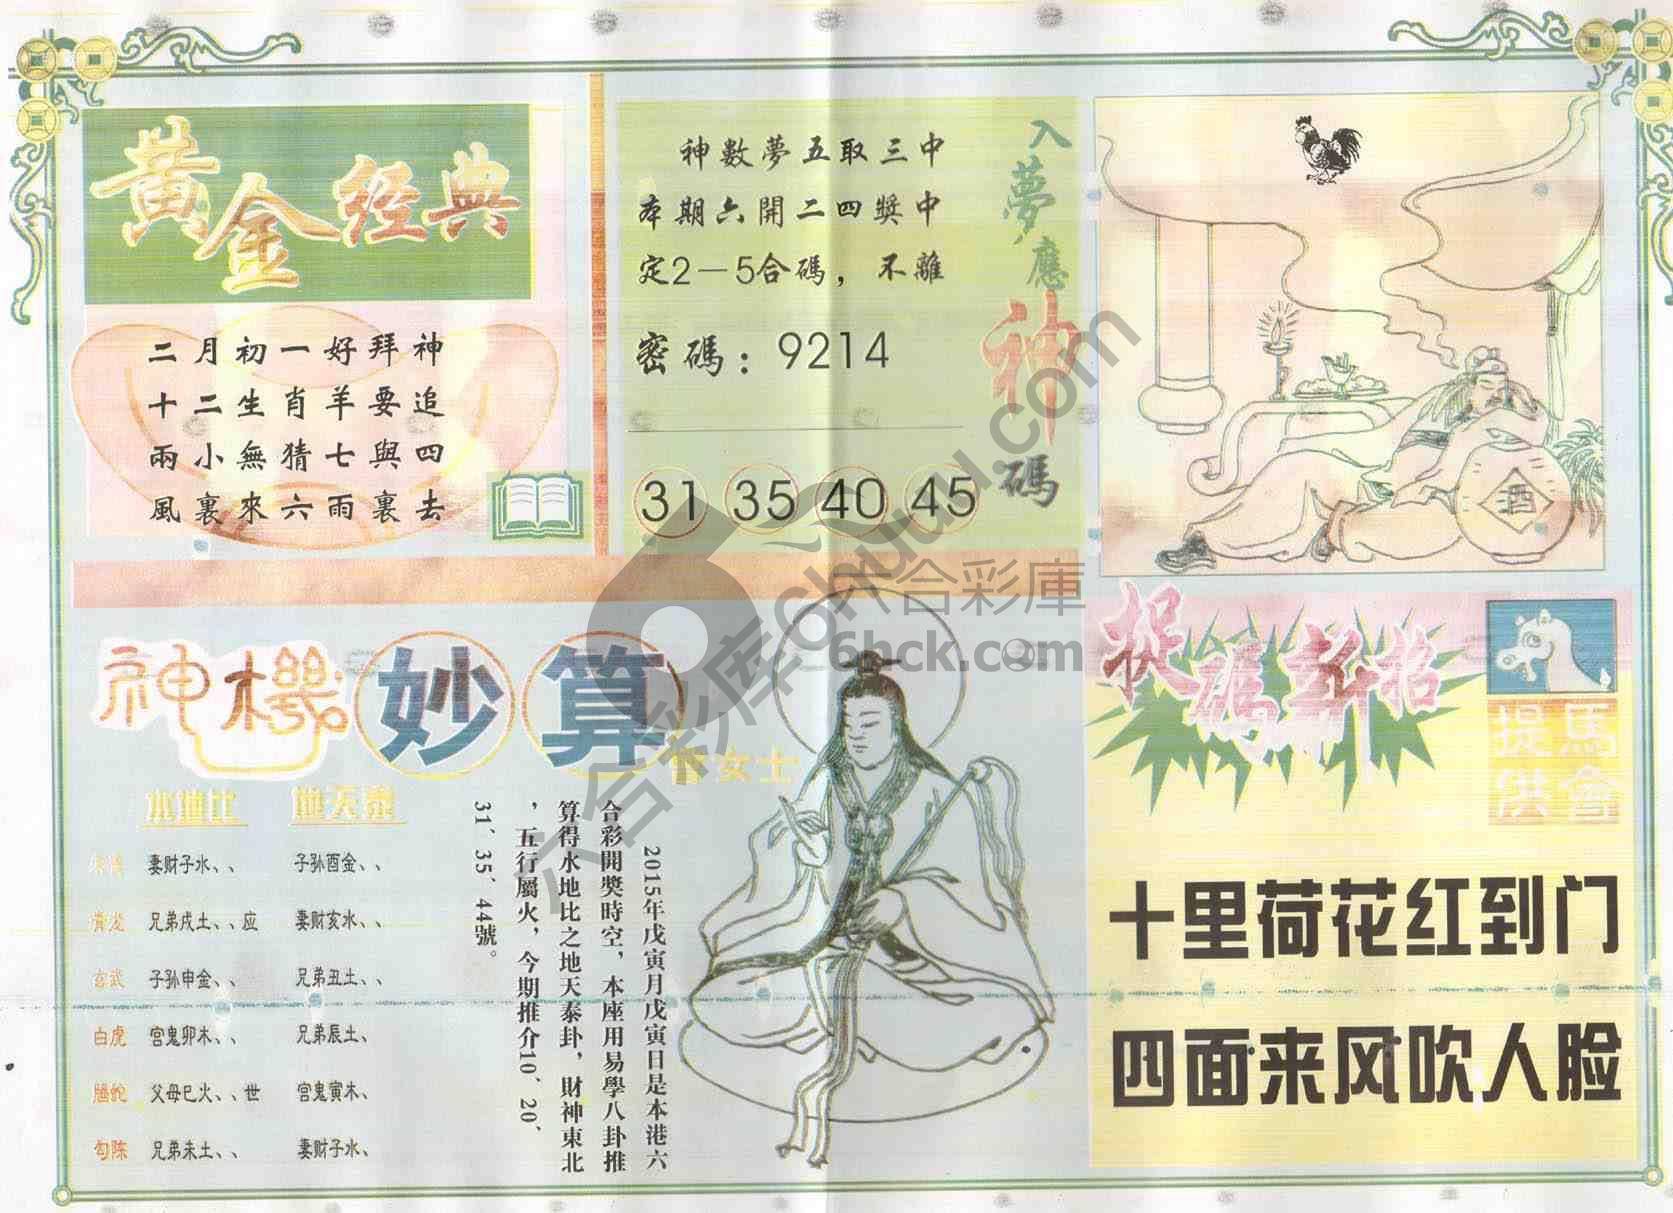 黄金经典
二月初一好拜神
十二生肖羊要追
兩小無猜七與四
風裏來六雨裏去
神數夢五取三中
本期六開二四獎中
定2—5合碼，不離
密碼：9214
31 35 40 45
入夢應神碼
酒
神機妙算
女士
本地比 地天泰
妻财子水、、 子孙酉金、、
青龙 兄弟戌土、、应 妻财亥水、、
玄武 子孙申金、、 兄弟丑土、、
白虎 宫鬼卯木、、 兄弟辰土、
螣蛇 父母巳火、、世 宫鬼寅木、
勾陈 兄弟未土、、 妻财子水、
2015年戊寅月戊寅日是本港六
合彩開獎時空，本座用易學八卦推
算得水地比之地天泰卦，財神東北
，五行屬火，今期推介10、20、
31、35、44號。
捉碼新招
馬會
提供
十里荷花红到门
四面来风吹人脸
六合彩庫
6hck.com
六合彩库chuku.com